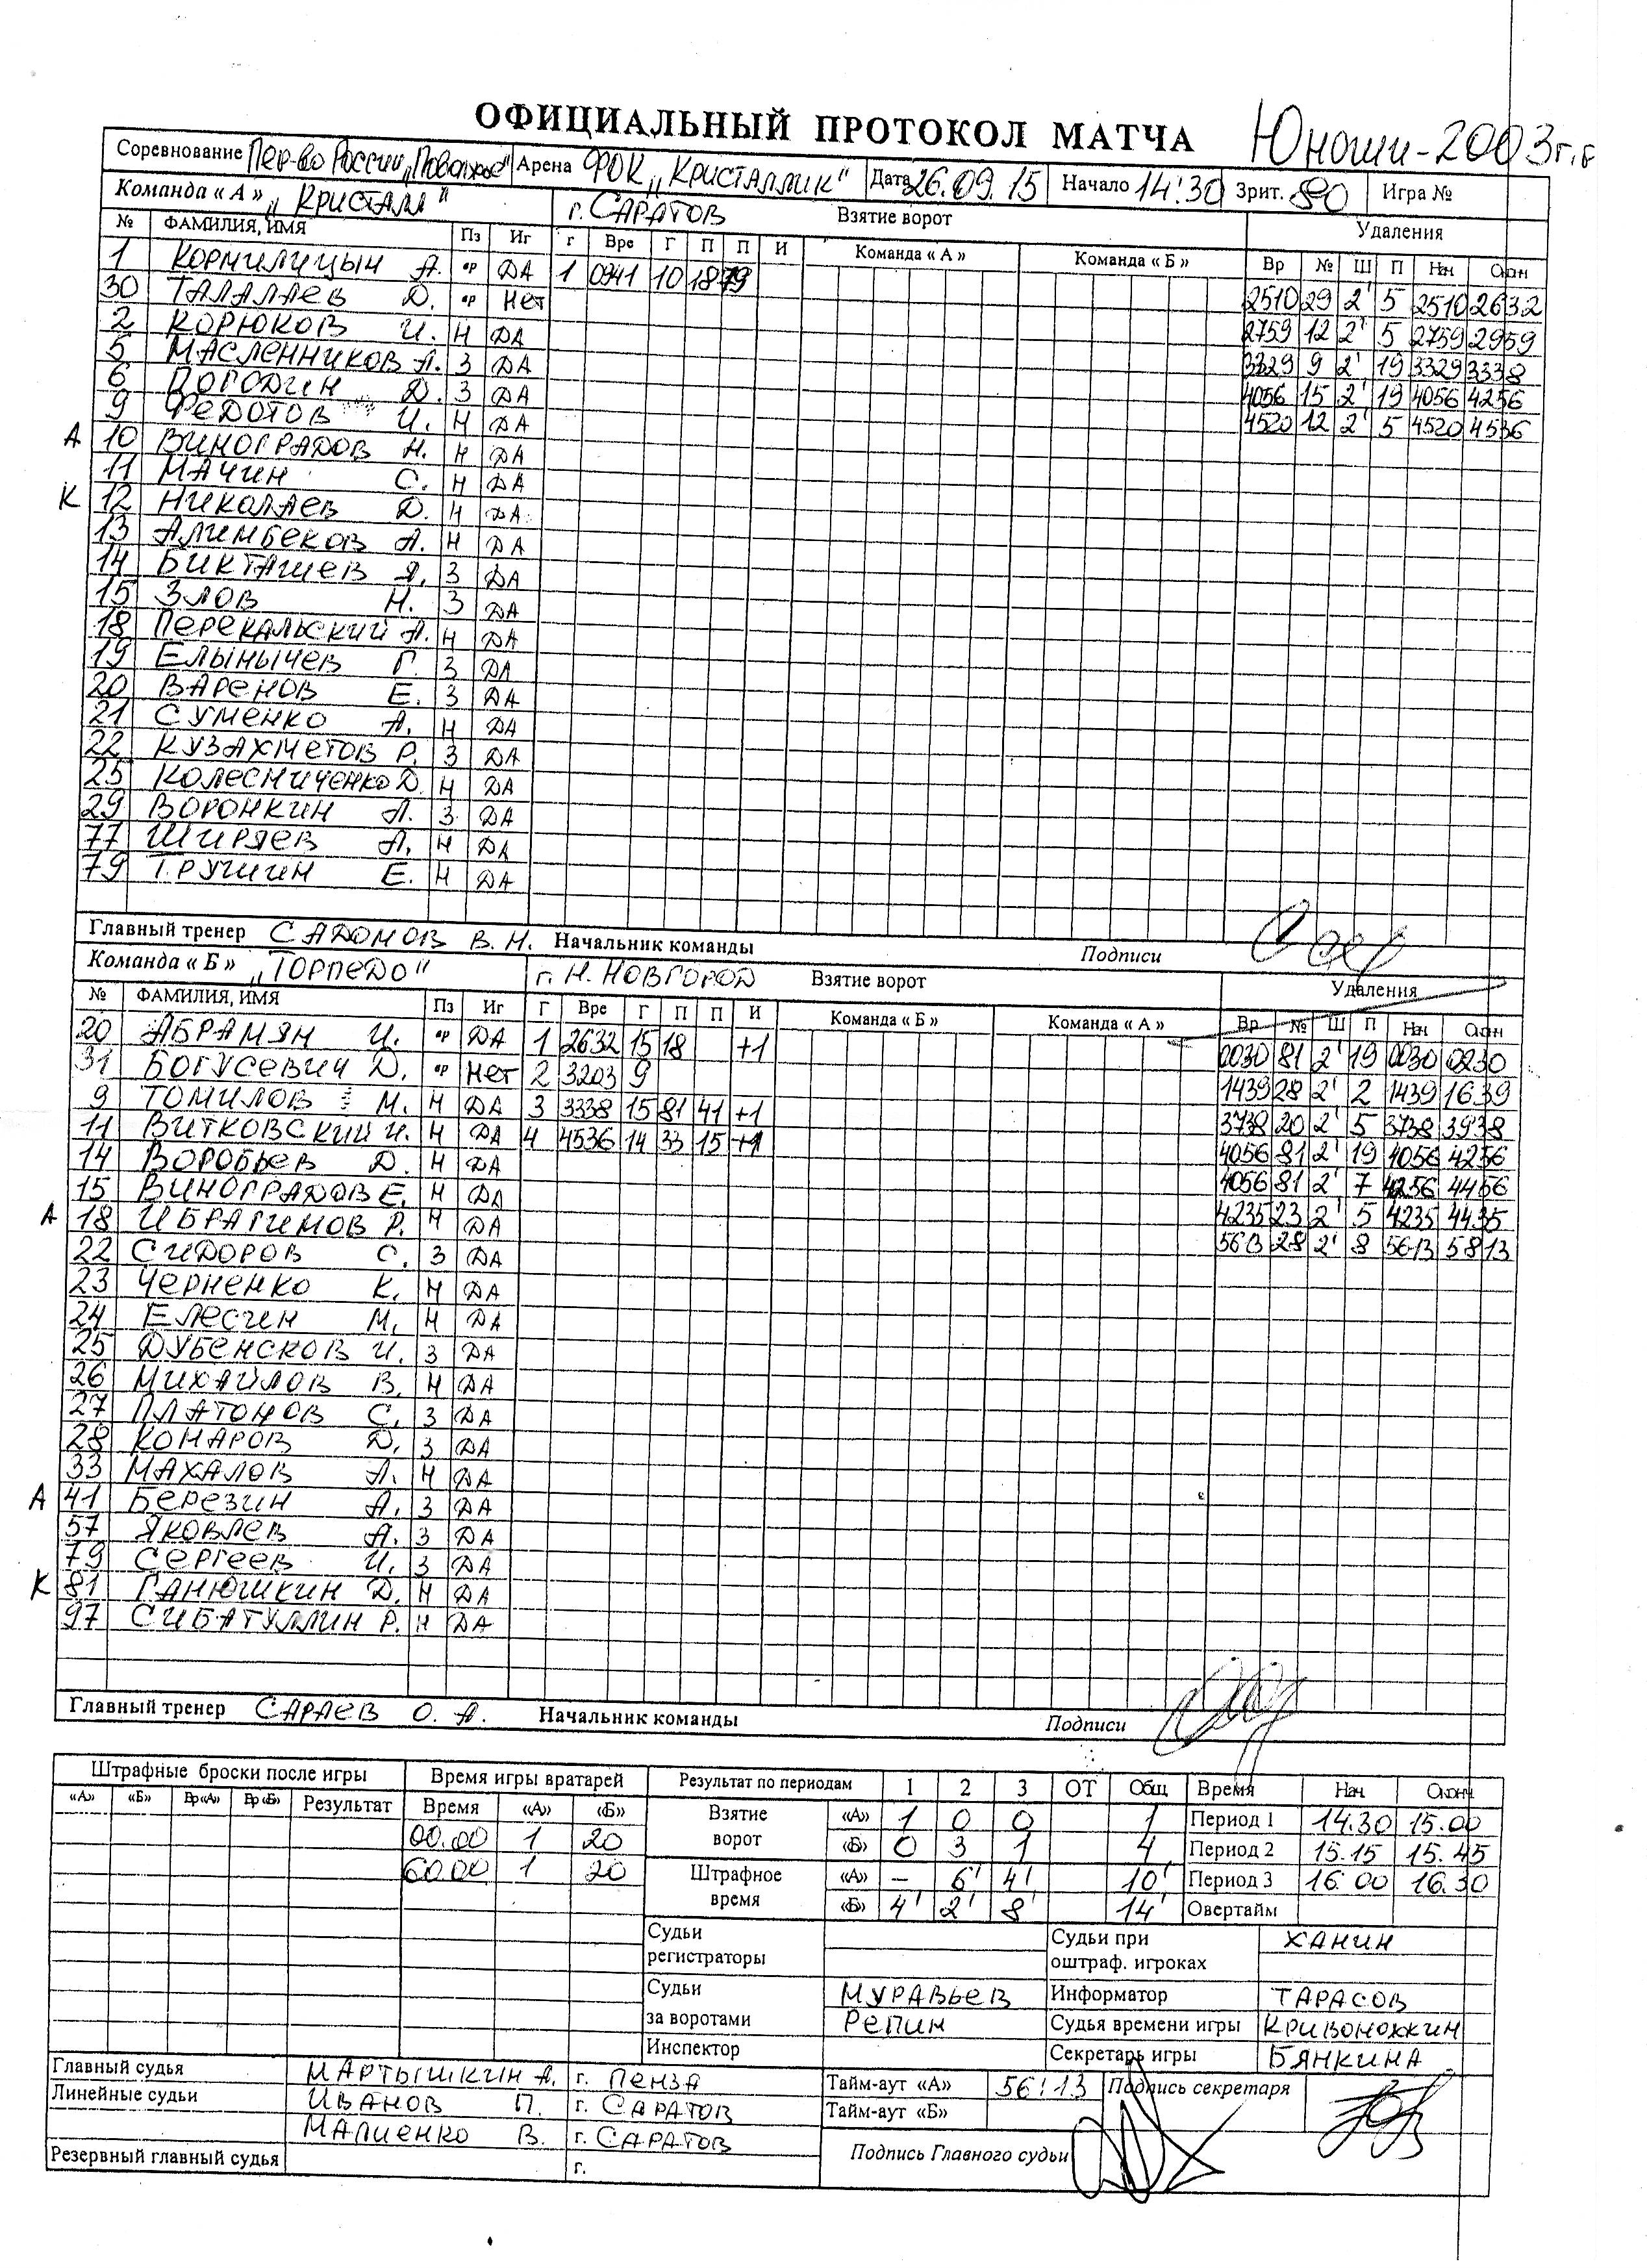 ОФИЦИАЛЬНЫЙ ПРОТОКОЛ МАТЧА Юноши-2003г.р
Соревнование Пер-во России „Поволжье" Арена ФОК „Кристаллик" Дата 26.09.15 Начало 14:30 Зрит. 80 Игра №
Команда « А » „Кристалл" г. САРАТОВ Взятие ворот Удаления
№ ФАМИЛИЯ, ИМЯ Пз Иг г Вре Г П П И Команда « А » Команда « Б » Вр № Ш П Нач Окон
1 Кормилицын А. вр ДА 1 0941 10 18 79 2510 29 2' 5 2510 2632
30 ТАЛАЛАЕВ Д. вр Нет 2759 12 2' 5 2759 2959
2 КОРЮКОВ И. Н ДА 3329 9 2' 19 3329 3338
5 МАСЛЕННИКОВ А. З ДА 4056 15 2' 19 4056 4256
6 ПОГОДИН Д. З ДА 4520 12 2' 5 4520 4536
9 ФЕДОТОВ И. Н ДА
А 10 ВИНОГРАДОВ Н. Н ДА
11 МАЧИН С. Н ДА
К 12 НИКОЛАЕВ Д. Н ДА
13 АЛИМБЕКОВ А. Н ДА
14 БИКТАШЕВ Я. З ДА
15 ЗЛОВ Н. З ДА
18 ПЕРЕКАЛЬСКИЙ А. Н ДА
19 ЕЛЫНЫЧЕВ Г. З ДА
20 ВАРЕНОВ Е. З ДА
21 СУМЕНКО А. Н ДА
22 КУЗАХМЕТОВ Р. З ДА
25 КОЛЕСНИЧЕНКО Д. Н ДА
29 ВОРОНКИН А. З ДА
77 ШИРЯЕВ А. Н ДА
79 ТРУШИН Е. Н ДА
Главный тренер САДОМОВ В. Н. Начальник команды Подписи
Команда « Б » „ТОРПЕДО" г. Н. НОВГОРОД Взятие ворот Удаления
№ ФАМИЛИЯ, ИМЯ Пз Иг Г Вре Г П П И Команда « Б » Команда « А » Вр № Ш П Нач Окон
20 АБРАМЯН И. вр ДА 1 2632 15 18 +1 0030 81 2' 19 0030 0230
31 БОГУСЕВИЧ Д. вр Нет 2 3203 9 1439 28 2' 2 1439 1639
9 ТОМИЛОВ М. Н ДА 3 3338 15 81 41 +1 3738 20 2' 5 3738 3938
11 ВИТКОВСКИЙ И. Н ДА 4 4536 14 33 15 +1 4056 81 2' 19 4056 4256
14 ВОРОБЬЕВ Д. Н ДА 4056 81 2' 7 4256 4456
15 ВИНОГРАДОВ Е. Н ДА 4235 23 2' 5 4235 4435
А 18 ИБРАГИМОВ Р. Н ДА 5613 28 2' 8 5613 5813
22 СИДОРОВ С. З ДА
23 ЧЕРНЕНКО К. Н ДА
24 ЕЛЕСИН М. Н ДА
25 ДУБЕНСКОВ И. З ДА
26 МИХАЙЛОВ В. Н ДА
27 ПЛАТОНОВ С. З ДА
28 КОМАРОВ Д. З ДА
33 МАХАЛОВ А. Н ДА
А 41 БЕРЕЗИН А. З ДА
57 ЯКОВЛЕВ А. З ДА
79 СЕРГЕЕВ И. З ДА
К 81 ГАНЮШКИН Д. Н ДА
97 СИБАТУЛЛИН Р. Н ДА
Главный тренер САРАЕВ О. А. Начальник команды Подписи
Штрафные броски после игры Время игры вратарей Результат по периодам 1 2 3 ОТ Общ Время Нач Оконч
«А» «Б» Вр«А» Вр«Б» Результат Время «А» «Б» Взятие ворот «А» 1 0 0 1 Период 1 14.30 15.00
00.00 1 20 «Б» 0 3 1 4 Период 2 15.15 15.45
60.00 1 20 Штрафное время «А» – 6' 4' 10' Период 3 16.00 16.30
«Б» 4' 2' 8' 14' Овертайм
Судьи регистраторы Судьи при оштраф. игроках ХАНИН
Судьи за воротами МУРАВЬЕВ Информатор ТАРАСОВ
РЕПИН Судья времени игры КРИВОНОЖКИН
Инспектор Секретарь игры БЯНКИНА
Главный судья МАРТЫШКИН А. г. ПЕНЗА Тайм-аут «А» 56:13 Подпись секретаря
Линейные судьи ИВАНОВ П. г. САРАТОВ Тайм-аут «Б»
МАЛИЕНКО В. г. САРАТОВ
Резервный главный судья г. Подпись Главного судьи